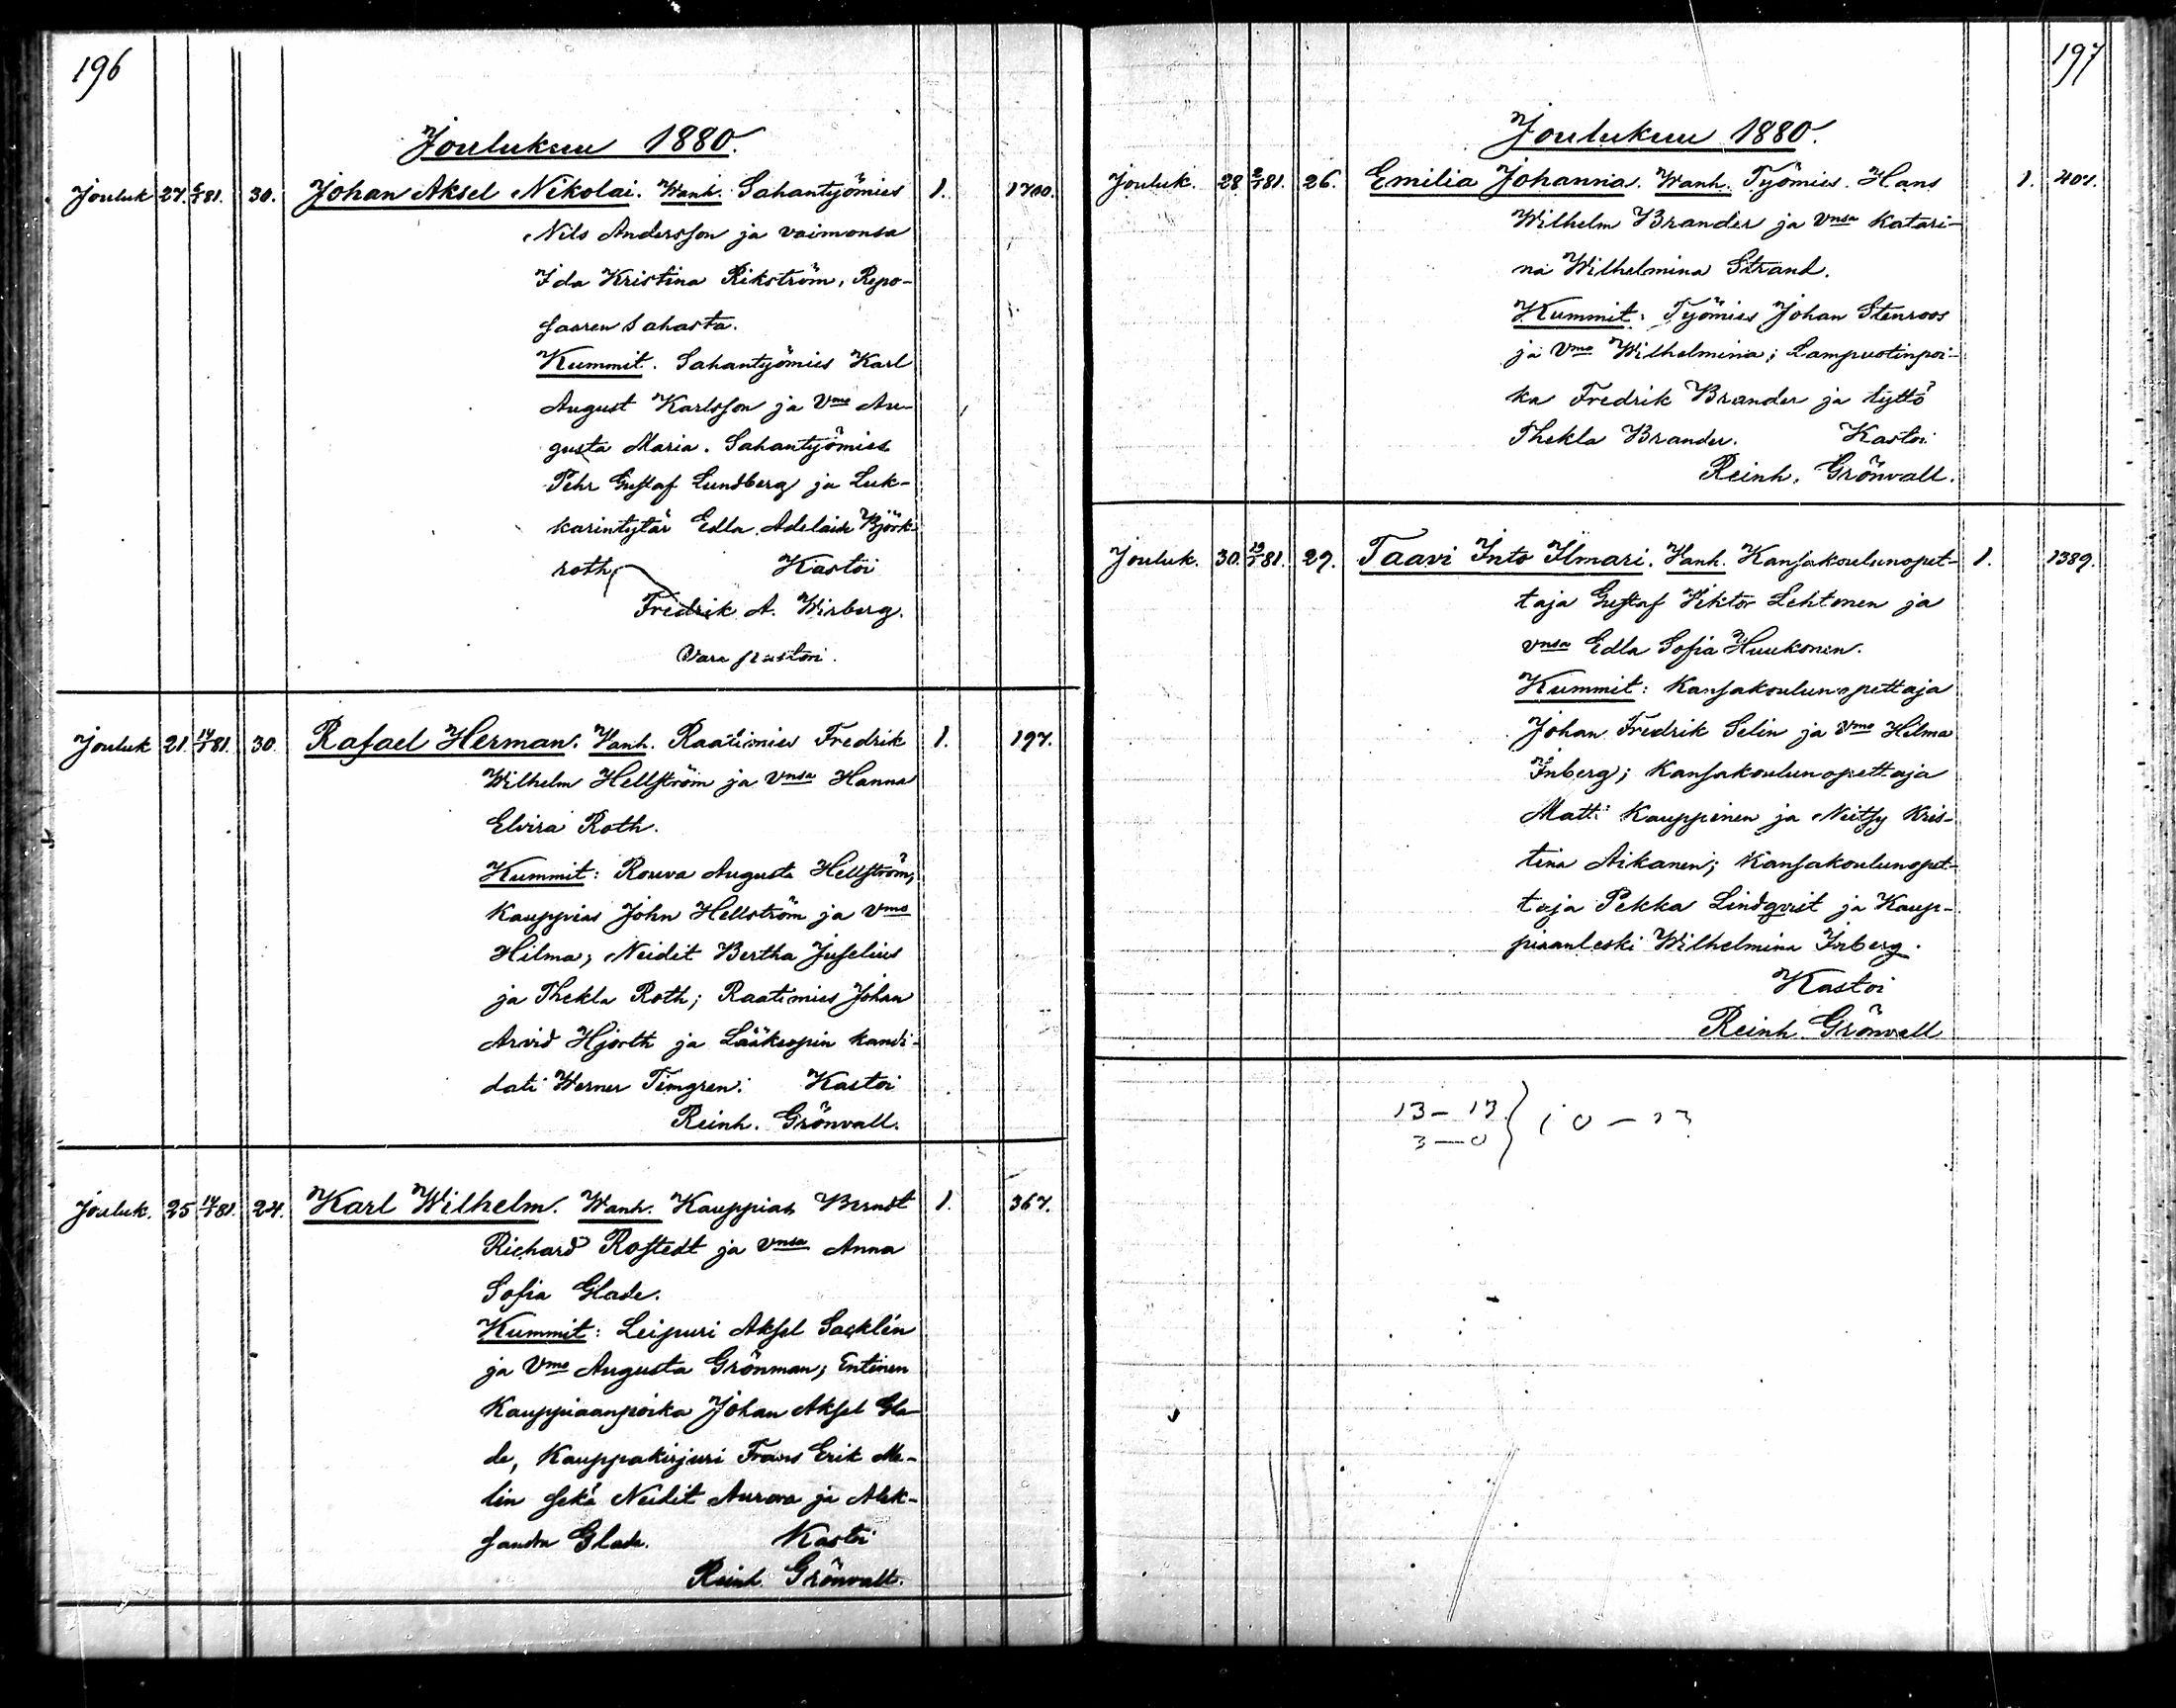 196
Joulukuu 1880.
Jouluk 27. 6/1 81. 30. Johan Aksel Nikolai. Wanh. Sahantyömies 1. 1700.
Nils Andersson ja vaimonsa
Ida Kristina Rikström, Repo-
saaren Sahasta.
Kummit. Sahantyömies Karl
August Karlsson ja Vmo Au-
gusta Maria. Sahantyömies
Pehr Gustaf Lundberg ja Luk-
karintytär Edla Adelaide Björk-
roth Kastoi
Fredrik A. Wirberg.
Vara pastori.
Jouluk 21. 14/1 81. 30. Rafael Herman. Vanh. Raatimies Fredrik 1. 197.
Wilhelm Hellström ja Vnsa Hanna
Elvira Roth.
Kummit: Rouva Augusta Hellström,
Kauppias John Hellström ja Vmo
Hilma, Neidit Bertha Juselius
ja Thekla Roth; Raatimies Johan
Arvid Hjorth ja Lääkeopin kandi-
dati Werner Timgren. Kastoi
Reinh. Grönvall.
Jouluk. 25 14/1 81. 24. Karl Wilhelm. Wanh. Kauppias Berndt 1. 367.
Richard Rostedt ja Vnsa Anna
Sofia Glade.
Kummit: Leipuri Aksel Sacklén
ja Vmo Augusta Grönman; Entinen
Kauppiaanpoika Johan Aksel Gla-
de, Kauppakirjuri Frans Erik Me-
lin sekä Neidit Aurora ja Alek-
sandra Glade. Kastoi
Reinh. Grönvall.
197
Joulukuu 1880.
Jouluk. 28 2/1 81. 26. Emilia Johanna. Wanh. Työmies Hans 1. 407.
Wilhelm Brander ja Vnsa Katari-
na Wilhelmina Strand.
Kummit: Työmies Johan Stenroos
ja Vmo Wilhelmina; Lampuotinpoi-
ka Fredrik Brander ja tyttö
Thekla Brander. Kastoi
Reinh. Grönvall.
Jouluk. 30. 19/1 81. 29. Taavi Into Ilmari. Vanh. Kansakoulunopet- 1. 1389.
taja Gustaf Viktor Lehtonen ja
vnsa Edla Sofia Huukonen.
Kummit: Kansakoulunopettaja
Johan Fredrik Selin ja Vmo Hilma
Inberg; Kansakoulunopettaja
Matti Kauppinen ja Neitsy Kris-
tina Aikanen; Kansakoulunopet-
taja Pekka Lindqvist ja Kaup-
piaanleski Wilhelmina Inberg.
Kastoi
Reinh. Grönvall
13 – 13
3 – 0